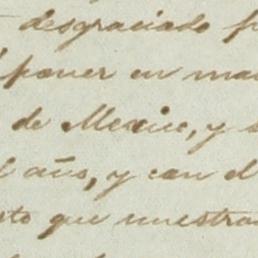 desgraciado
poner en
de Mexico, y
año, y con
que nuestra